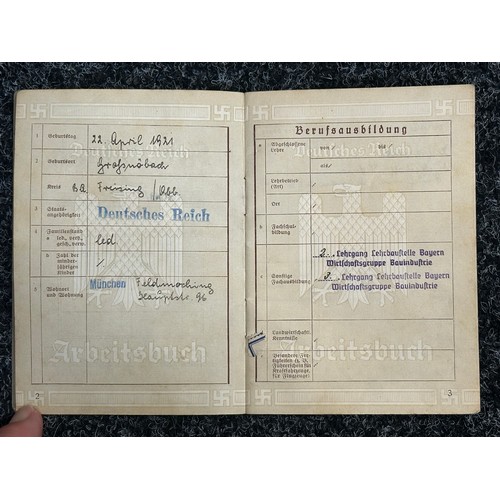 1 Geburtstag 22. April 1921
Deutsches Reich
2 Geburtsort Großnöbach
Kreis BA. Freising / Obb.
3 Staats-
angehörigkeit Deutsches Reich
4 Familienstand
a led., verh.,
gesch., verw. led.
b Zahl der
minder-
jährigen
Kinder /
5 Wohnort
und Wohnung München Feldmoching
Hauptstr. 96
Arbeitsbuch
2
Berufsausbildung
Deutsches Reich
a Abgeschlossene
Lehre von / bis /
als /
Lehrbetrieb
(Art) /
Ort /
b Fachschul-
bildung /
c Sonstige
Fachausbildung
2. Lehrgang Lehrbaustelle Bayern
Wirtschaftsgruppe Bauindustrie
3. Lehrgang Lehrbaustelle Bayern
Wirtschaftsgruppe Bauindustrie
Landwirtschaftl.
Kenntnisse
Besondere Fer-
tigkeiten (z. B.
Führerschein für
Kraftfahrzeuge,
für Flugzeuge)
Arbeitsbuch
3